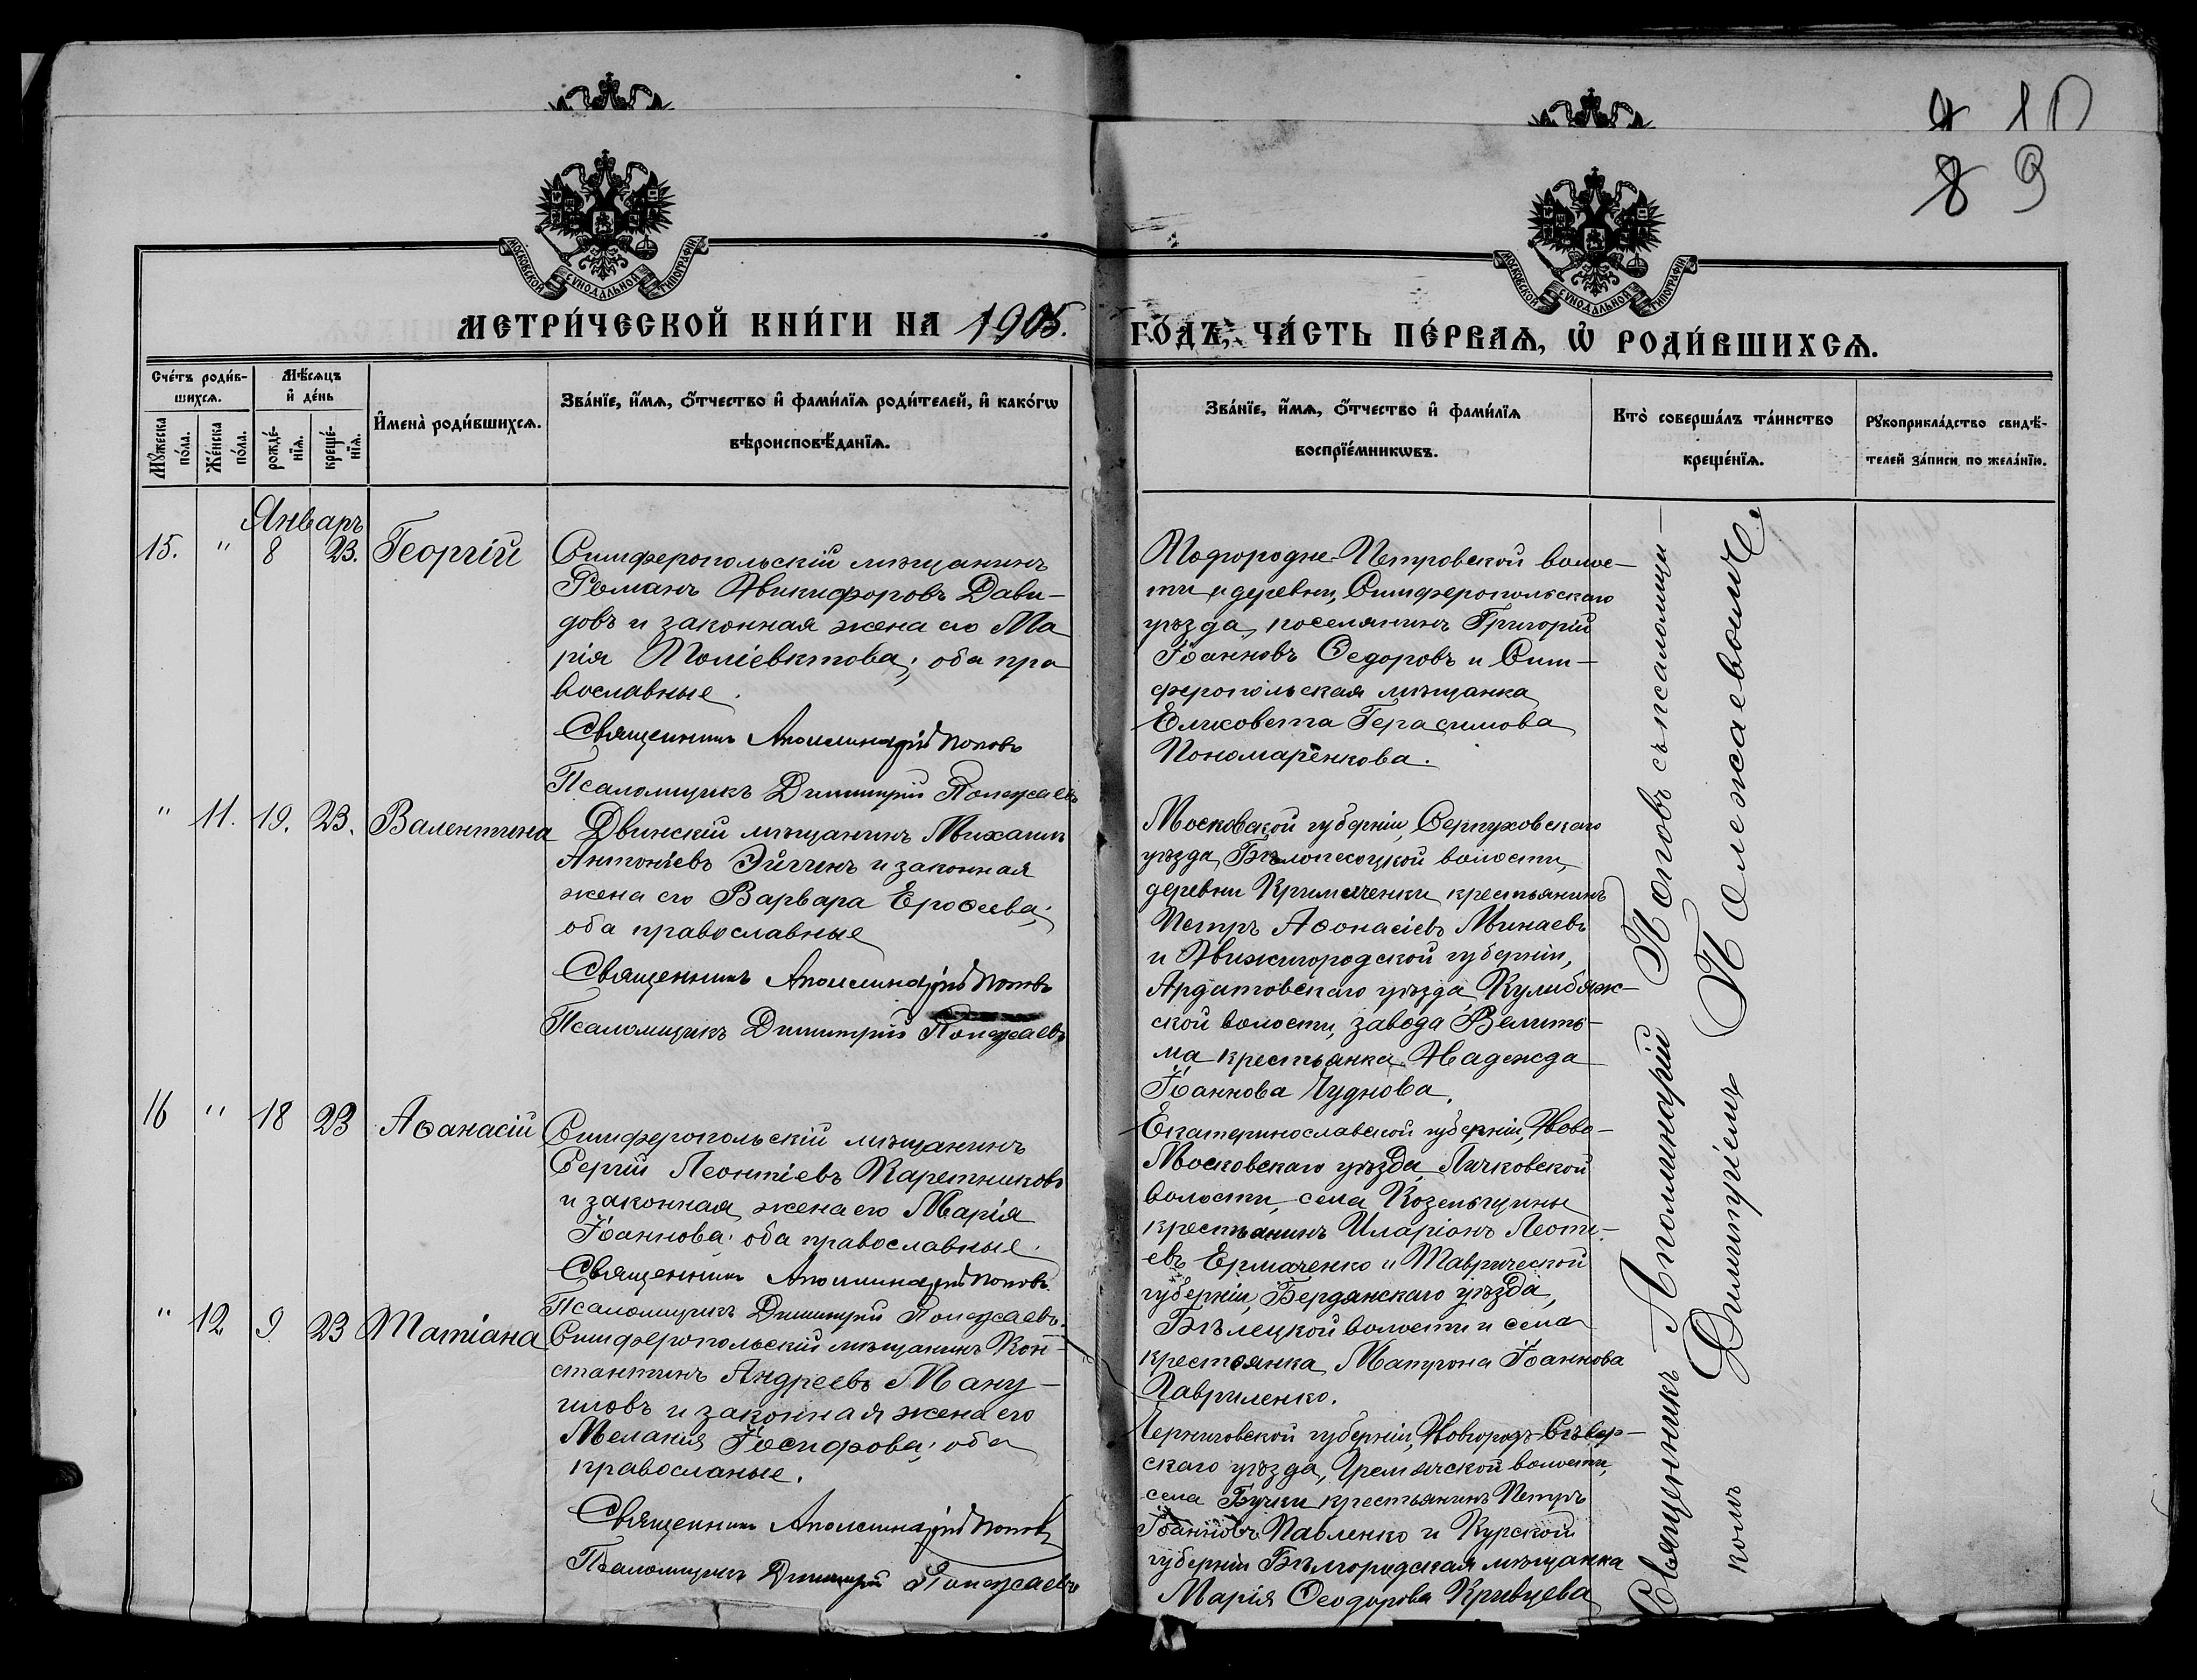 10
8 9
МОСКОВСКОЙ СѴНОДАЛЬНОЙ ТИПОГРАФІИ
МОСКОВСКОЙ СѴНОДАЛЬНОЙ ТИПОГРАФІИ
МЕТРИ́ЧЕСКОЙ КНИ́ГИ НА 1905.
ГО́ДЪ, ЧА́СТЬ ПЕ́РВАѦ, Ѽ РОДИ́ВШИХСѦ.
Сче́тъ роди́в-
шихсѧ.
Мꙋ́жеска по́ла.
Же́нска по́ла.
Мѣ́сѧцъ
и҆ де́нь
рожде́-
нїѧ.
креще́-
нїѧ.
И҆мена̀ роди́вшихсѧ.
Зва́нїе, и҆́мѧ, ѻ҆́тчество и҆ фами́лїѧ роди́телей, и҆ како́гѡ
вѣроисповѣ́данїѧ.
Зва́нїе, и҆́мѧ, ѻ҆́тчество и҆ фами́лїѧ
воспрїе́мникѡвъ.
Кто̀ соверша́лъ та́инство
креще́нїѧ.
Рꙋкоприкла́дство свидѣ́-
телей за́писи по жела́нїю.
Январь
15. " 8 23. Георгій
Симферопольскій мѣщанинъ
Романъ Никифоровъ Дави-
довъ и законная жена его Ма
рія Поліевктова; оба пра
вославные.
Священникъ Аполлинарій Поповъ
Псаломщикъ Димитрій Полежаевъ
Подгородне-Петровской волос-
ти и деревни, Симферопольскаго
уѣзда, поселянинъ Григорій
Іоанновъ Ѳедоровъ и Сим-
феропольская мѣщанка
Елисовета Герасимова
Пономаренкова.
" 11. 19. 23. Валентина
Двинскій мѣщанинъ Михаилъ
Антоніевъ Эйгинъ и законная
жена его Варвара Ероѳеева;
оба православные
Священникъ Аполлинарій Поповъ
Псаломщикъ Димитрій Полежаевъ
Московской губерніи, Серпуховскаго
уѣзда, Бѣлопесоцкой волости,
деревни крестьянинъ
Петръ Аѳонасіевъ Минаевъ
и Нижегородской губерніи,
Ардатовскаго уѣзда, Кулибяж-
ской волости, завода Велить-
ма крестьянка Надежда
Іоаннова Чуднова.
16 " 18 23 Аѳанасій
Симферопольскій мѣщанинъ
Сергій Леонтіевъ Каретниковъ
и законная жена его Марія
Іоаннова; оба православные.
Священникъ Аполлинарій Поповъ
Псаломщикъ Димитрій Полежаевъ.
Екатеринославской губерніи, Ново-
Московскаго уѣзда, Личковской
волости, села Козельщины
крестьянинъ Иларіонъ Леоти-
евъ Ермаченко и Таврической
губерніи, Бердянскаго уѣзда,
Бѣлецкой волости и села
крестьянка Матрона Іоаннова
Гавриленко.
" 12 9 23 Татіана
Симферопольскій мѣщанинъ Кон-
стантинъ Андреевъ Ману-
иловъ и законная жена его
Мелания Іосифова; оба
правосланые.
Священникъ Аполлинарій Поповъ
Псаломщикъ Димитрій Полежаевъ
Черниговской губерніи, Новгородъ-Сѣвер-
скаго уѣзда, Гремячской волости,
села Бучки крестьянинъ Петръ
Іоанновъ Павленко и Курской
губерніи Бѣлгородская мѣщанка
Марія Ѳеодорова Кривцева
Священникъ Аполлинарій Поповъ съ псаломщи-
комъ Димитріемъ Полежаевымъ.